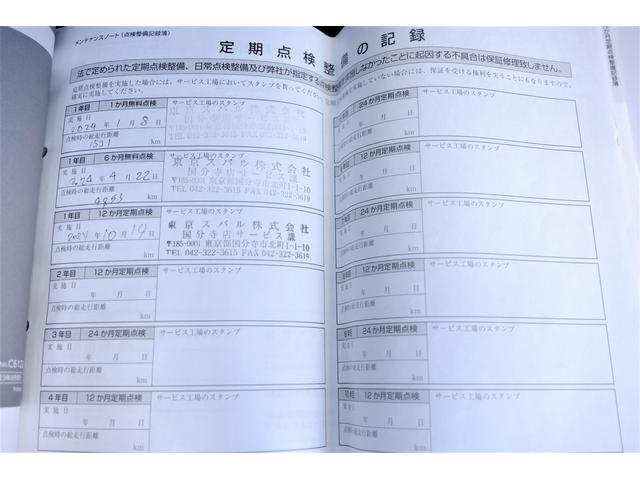 メンテナンスノート(点検整備記録簿)
定期点検整備の記録
法で定められた定期点検整備、日常点検整備及び弊社が指定する
整備を実施しなかったことに起因する不具合は保証修理致しません。
定期点検整備を実施した場合には、サービス工場においてスタンプを貰ってください。
実施していない場合には、保証を受ける権利を失うことにもなりますので、
確実に実施してください。
1年目 1か月無料点検
サービス工場のスタンプ
実施日
2024年1月8日
点検時の総走行距離
1531 km
東京スバル株式会社
国分寺店サービス課
〒185-0001 東京都国分寺市北町1-1-10
TEL 042-322-3615 FAX 042-322-3619
1年目 6か月無料点検
サービス工場のスタンプ
実施日
2024年4月22日
点検時の総走行距離
4853 km
東京スバル株式会社
国分寺店サービス課
〒185-0001 東京都国分寺市北町1-1-10
TEL 042-322-3615 FAX 042-322-3619
1年目 12か月定期点検
サービス工場のスタンプ
実施日
2024年10月14日
点検時の総走行距離
km
東京スバル株式会社
国分寺店サービス課
〒185-0001 東京都国分寺市北町1-1-10
TEL 042-322-3615 FAX 042-322-3619
2年目 12か月定期点検
サービス工場のスタンプ
実施日
年 月 日
点検時の総走行距離
km
3年目 24か月定期点検
サービス工場のスタンプ
実施日
年 月 日
点検時の総走行距離
km
4年目 12か月定期点検
サービス工場のスタンプ
実施日
年 月 日
点検時の総走行距離
km
24か月定期点検
サービス工場のスタンプ
年 月 日
km
12か月定期点検
サービス工場のスタンプ
年 月 日
km
24か月定期点検
サービス工場のスタンプ
年 月 日
km
12か月定期点検
サービス工場のスタンプ
年 月 日
km
9年目 24か月定期点検
サービス工場のスタンプ
実施日
年 月 日
点検時の総走行距離
km
10年目 12か月定期点検
サービス工場のスタンプ
実施日
年 月 日
点検時の総走行距離
km